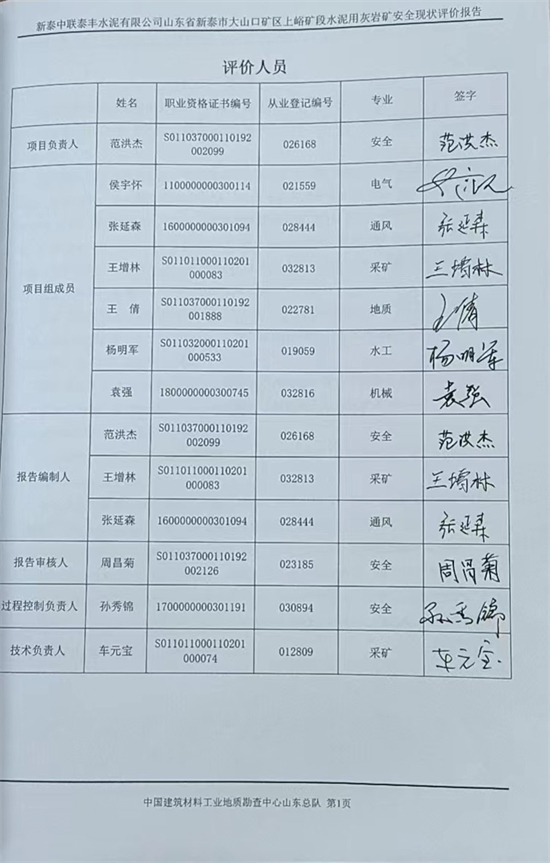 新泰中联泰丰水泥有限公司山东省新泰市大山口矿区上峪矿段水泥用灰岩矿安全现状评价报告
评价人员
姓名 职业资格证书编号 从业登记编号 专业 签字
项目负责人 范洪杰 S011037000110192002099 026168 安全 范洪杰
项目组成员
侯宇怀 1100000000300114 021559 电气
张延森 1600000000301094 028444 通风 张延森
王增林 S011011000110201000083 032813 采矿 王增林
王倩 S011037000110192001888 022781 地质 王倩
杨明军 S011032000110201000533 019059 水工 杨明军
袁强 1800000000300745 032816 机械 袁强
报告编制人
范洪杰 S011037000110192002099 026168 安全 范洪杰
王增林 S011011000110201000083 032813 采矿 王增林
张延森 1600000000301094 028444 通风 张延森
报告审核人 周昌菊 S011037000110192002126 023185 安全 周昌菊
过程控制负责人 孙秀锦 1700000000301191 030894 安全 孙秀锦
技术负责人 车元宝 S011011000110201000074 012809 采矿 车元宝
中国建筑材料工业地质勘查中心山东总队 第1页